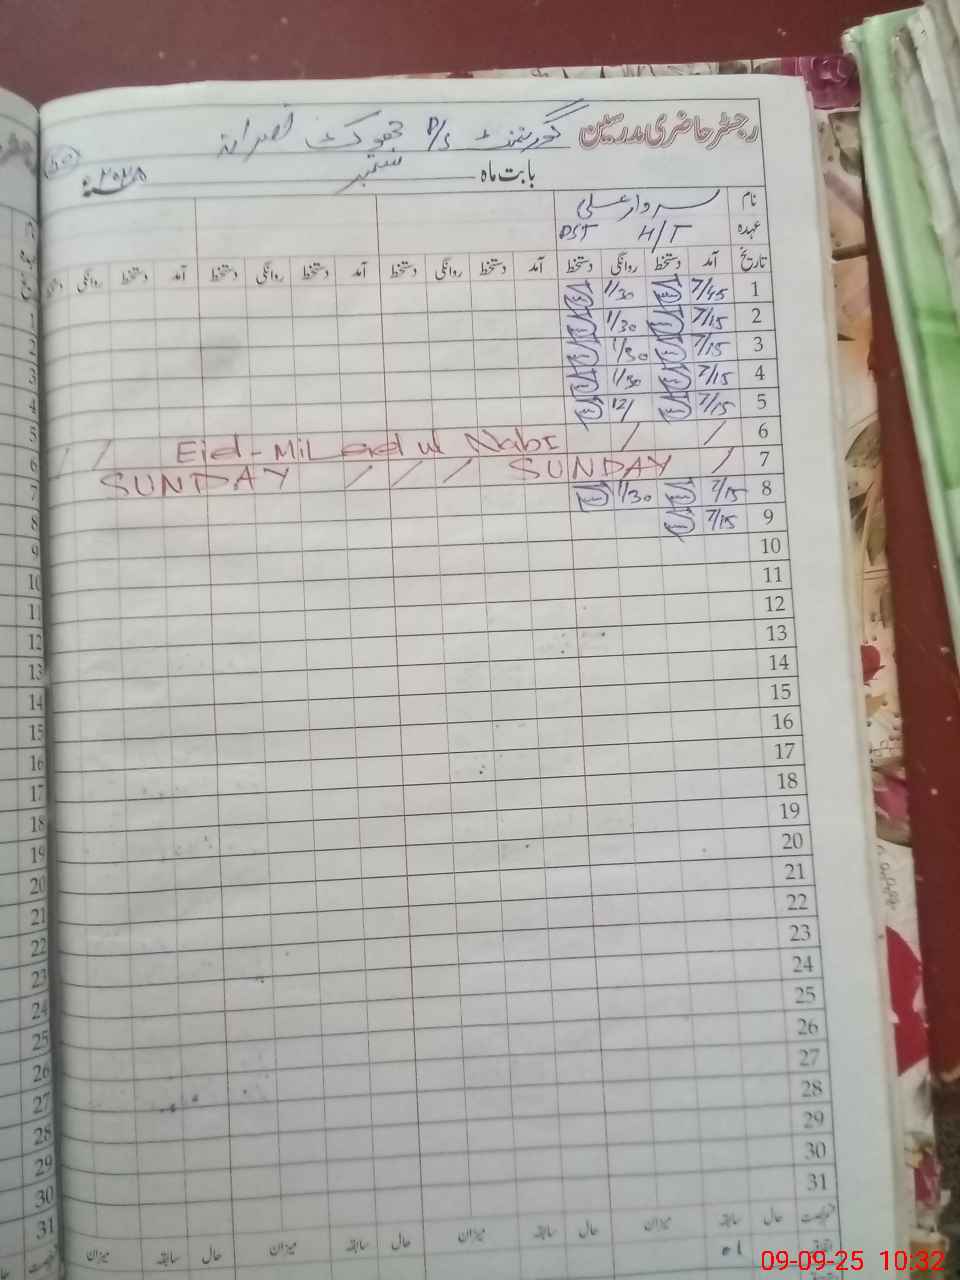 رجسٹر حاضری مدرسین گورنمنٹ P/S جھوک نصرانہ
بابت ماہ ستمبر
نام سردار علی
عہدہ H/T PST
تاریخ آمد دستخط روانگی دستخط آمد دستخط روانگی دستخط آمد دستخط روانگی دستخط آمد دستخط روانگی
1 7/45 1/30
2 7/15 1/30
3 7/15 1/30
4 7/15 1/30
5 7/15 12/
6 / / Eid-MiLad ul Nabi / /
7 / SUNDAY / / / SUNDAY
8 7/15 1/30
9 7/15
10
11
12
13
14
15
16
17
18
19
20
21
22
23
24
25
26
27
28
29
30
31
حال سابقہ میزان حال سابقہ میزان حال سابقہ میزان حال سابقہ میزان
09-09-25 10:32